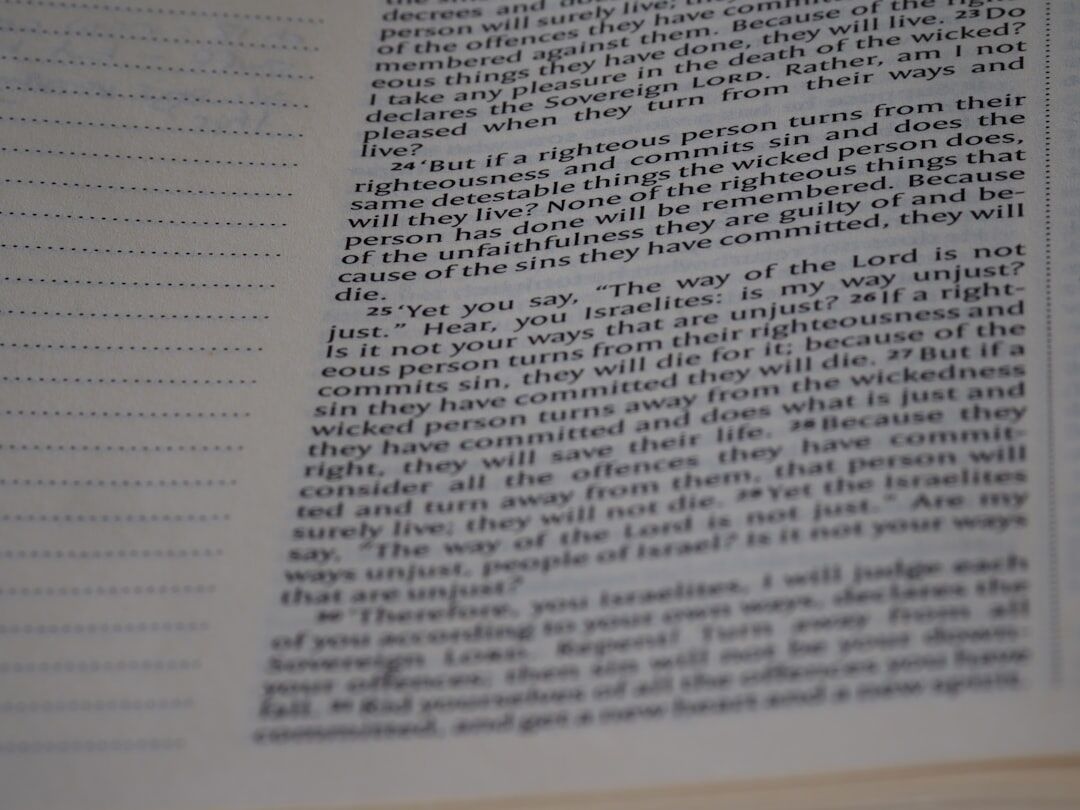 decrees and
person will surely live;
of the offences they have commit
membered against them. Because of the right-
eous things they have done, they will live. 23 Do
I take any pleasure in the death of the wicked?
declares the Sovereign LORD. Rather, am I not
pleased when they turn from their ways and
live?
24 ‘But if a righteous person turns from their
righteousness and commits sin and does the
same detestable things the wicked person does,
will they live? None of the righteous things that
person has done will be remembered. Because
of the unfaithfulness they are guilty of and be-
cause of the sins they have committed, they will
die.
25 ‘Yet you say, “The way of the Lord is not
just.” Hear, you Israelites: is my way unjust?
Is it not your ways that are unjust? 26 If a right-
eous person turns from their righteousness and
commits sin, they will die for it; because of the
sin they have committed they will die. 27 But if a
wicked person turns away from the wickedness
they have committed and does what is just and
right, they will save their life. 28 Because they
consider all the offences they have commit-
ted and turn away from them, that person will
surely live; they will not die. 29 Yet the Israelites
say, “The way of the Lord is not just.” Are my
ways unjust, people of Israel? Is it not your ways
that are unjust?
30 ‘Therefore, you Israelites, I will judge each
of you according to your own ways, declares the
Sovereign LORD. Repent! Turn away from all
your offences; then sin will not be your down-
fall. 31 Rid yourselves of all the offences you have
committed, and get a new heart and a new spirit.